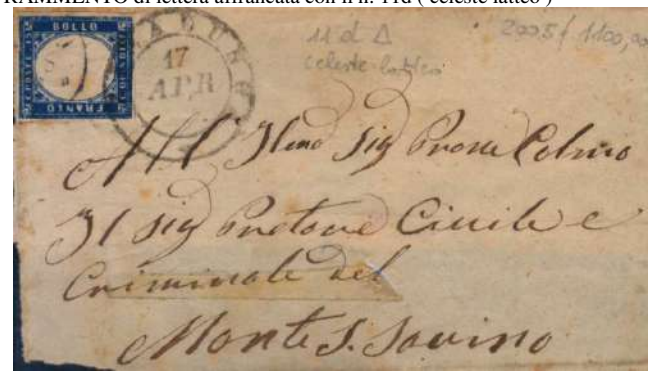 RAMMENTO di lettera affrancata con il n. 11d ( celeste latteo )
BOLLO
FRANCO
17
APR
11 d Δ
celeste-latteo
2005/ 1100,00
All' Illmo Sig Prone Colmo
Il Sig Pretore Civile e
Criminale del
Monte S. Savino